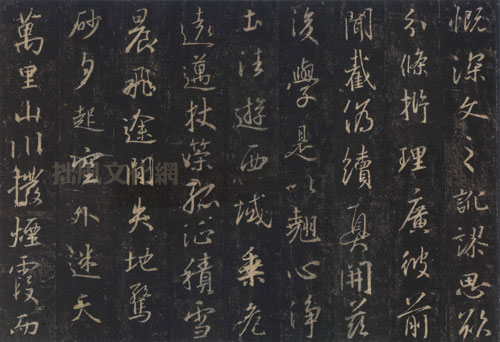 慨深文之訛謬思欲
分條析理廣彼前
聞截偽續真開茲
後學是以翹心淨
土往遊西域乘危
遠邁杖策孤征積雪
晨飛途間失地驚
砂夕起空外迷天
萬里山川撥煙霞而
拙風文化網